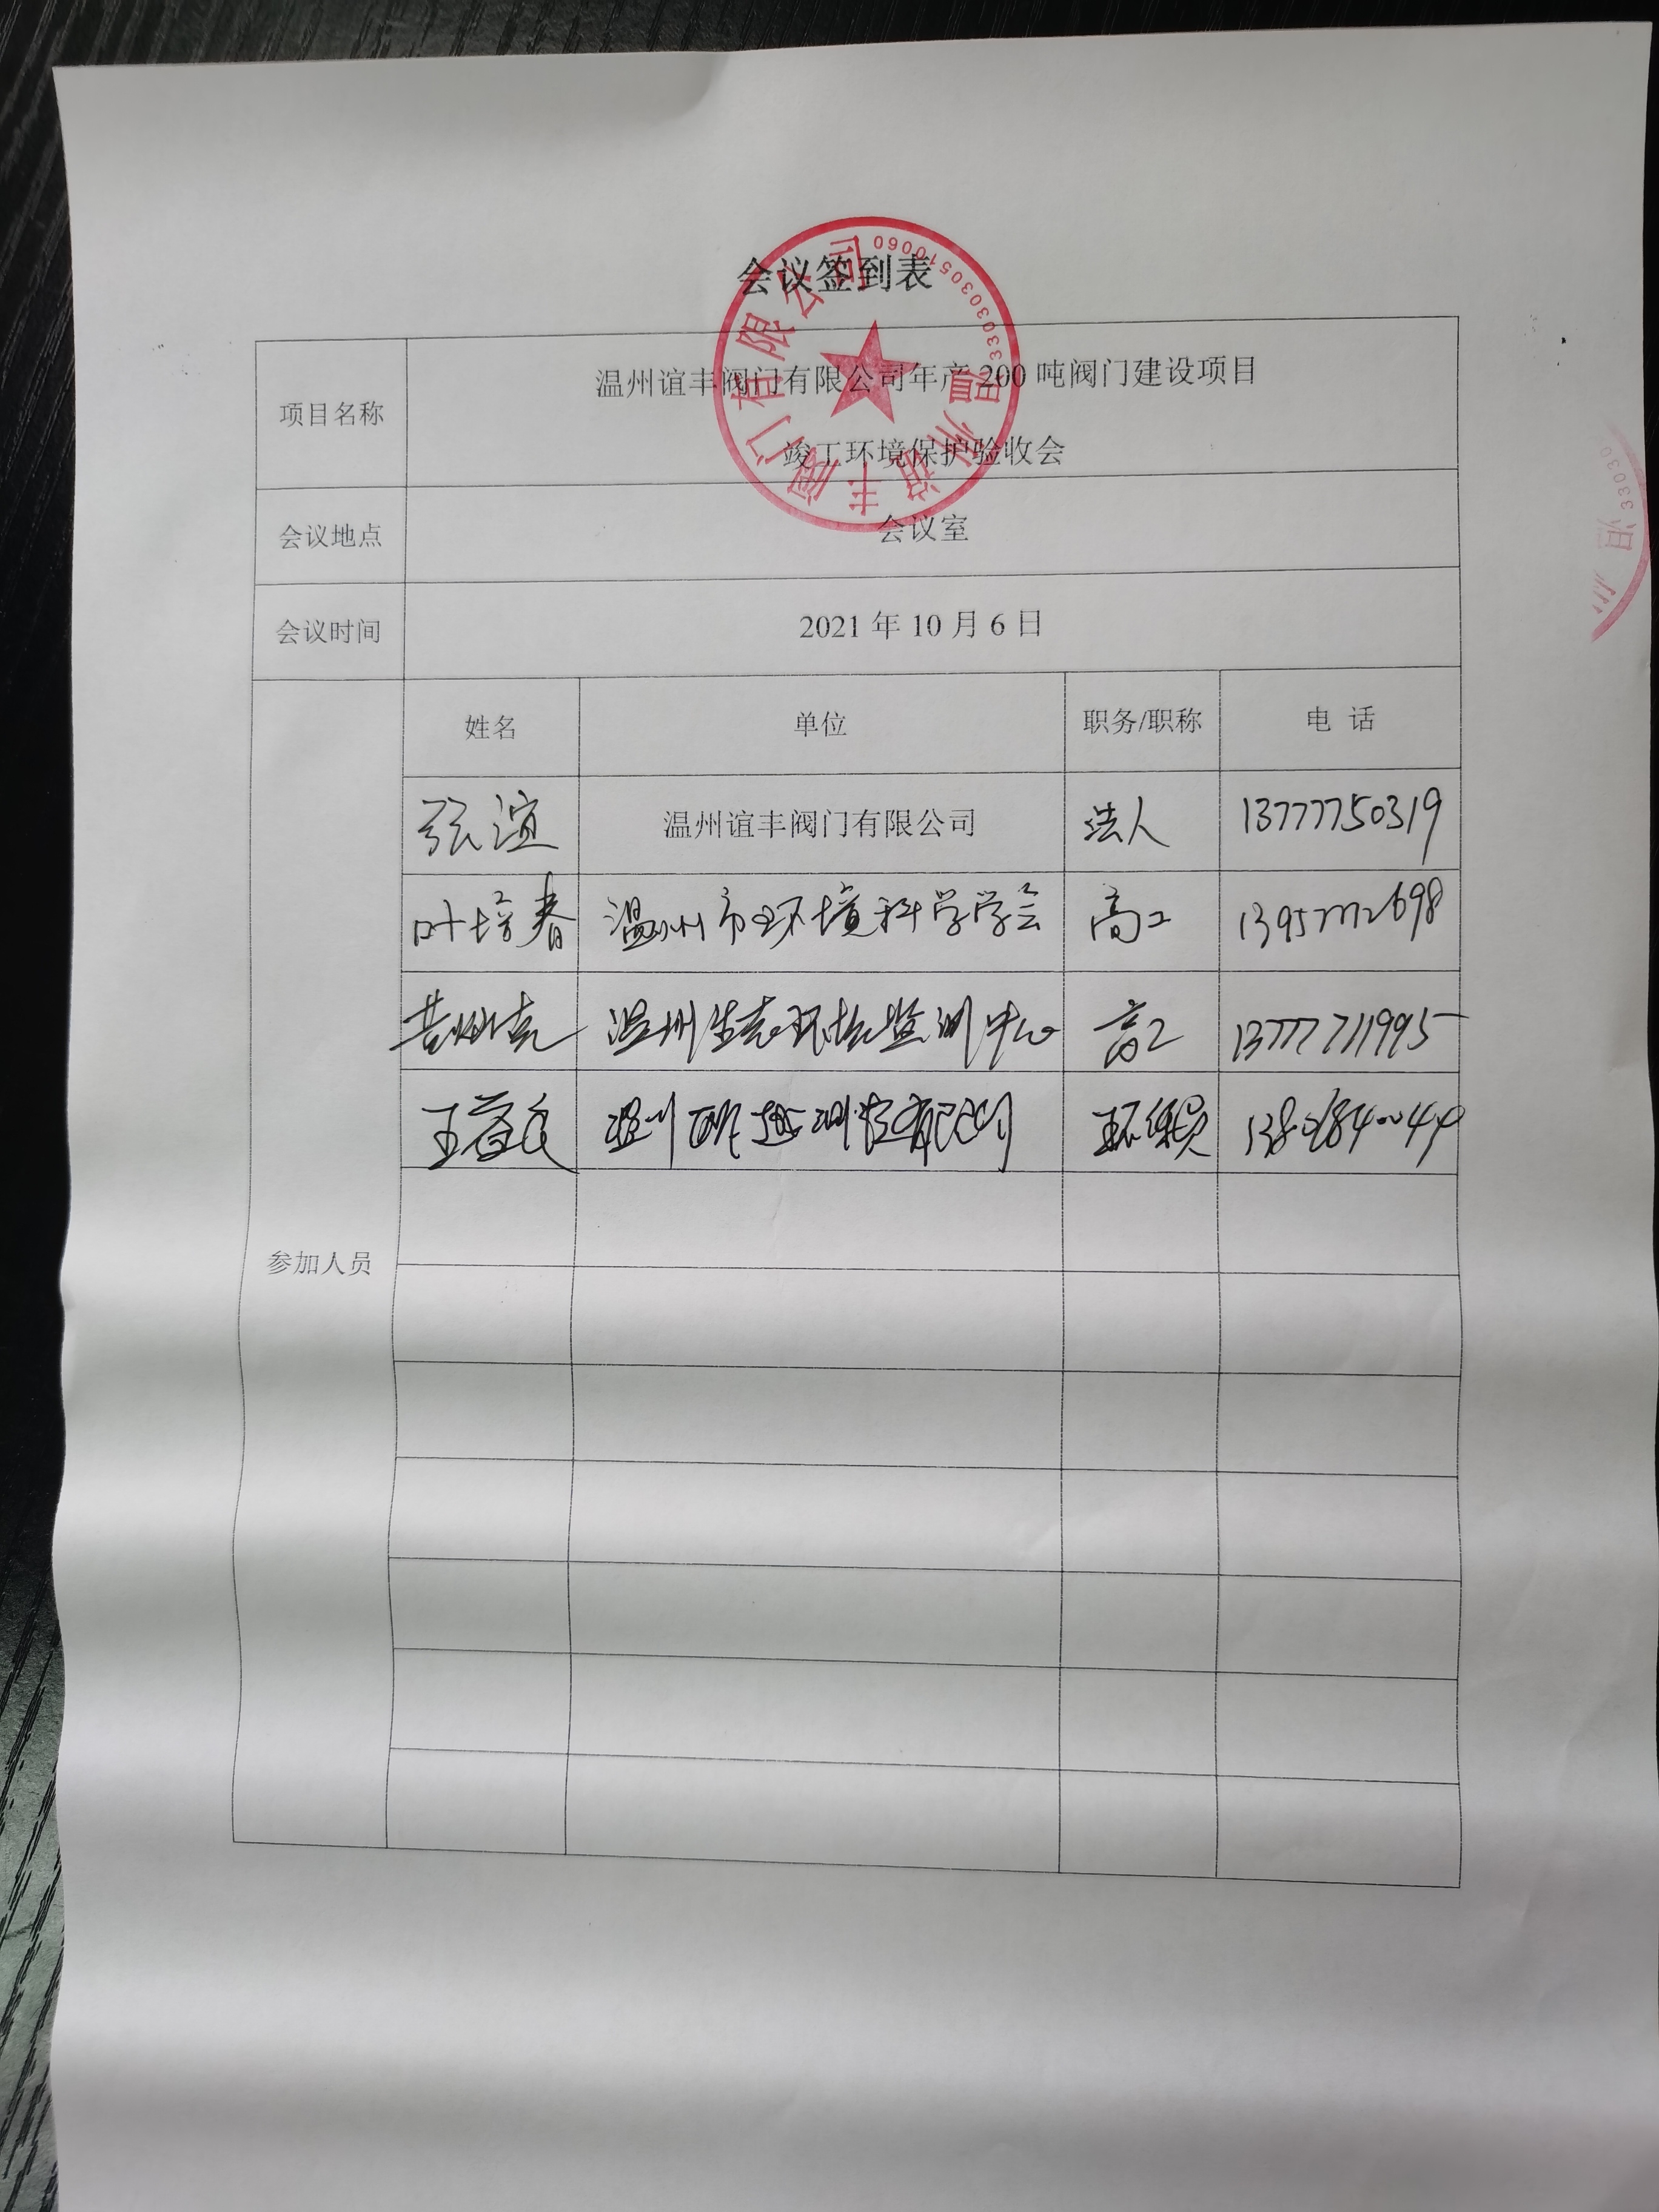 会议签到表
项目名称
温州谊丰阀门有限公司年产 200 吨阀门建设项目
竣工环境保护验收会
会议地点
会议室
会议时间
2021 年 10 月 6 日
参加人员
姓名 单位 职务/职称 电 话
张谊 温州谊丰阀门有限公司 法人 13777750319
叶培春 温州市环境科学学会 高工 13957772698
温州生态环境监测中心 高工 13777711995
王 温州 检测 有限公司 环保员
温州谊丰阀门有限公司
3303030510060
温州
33030